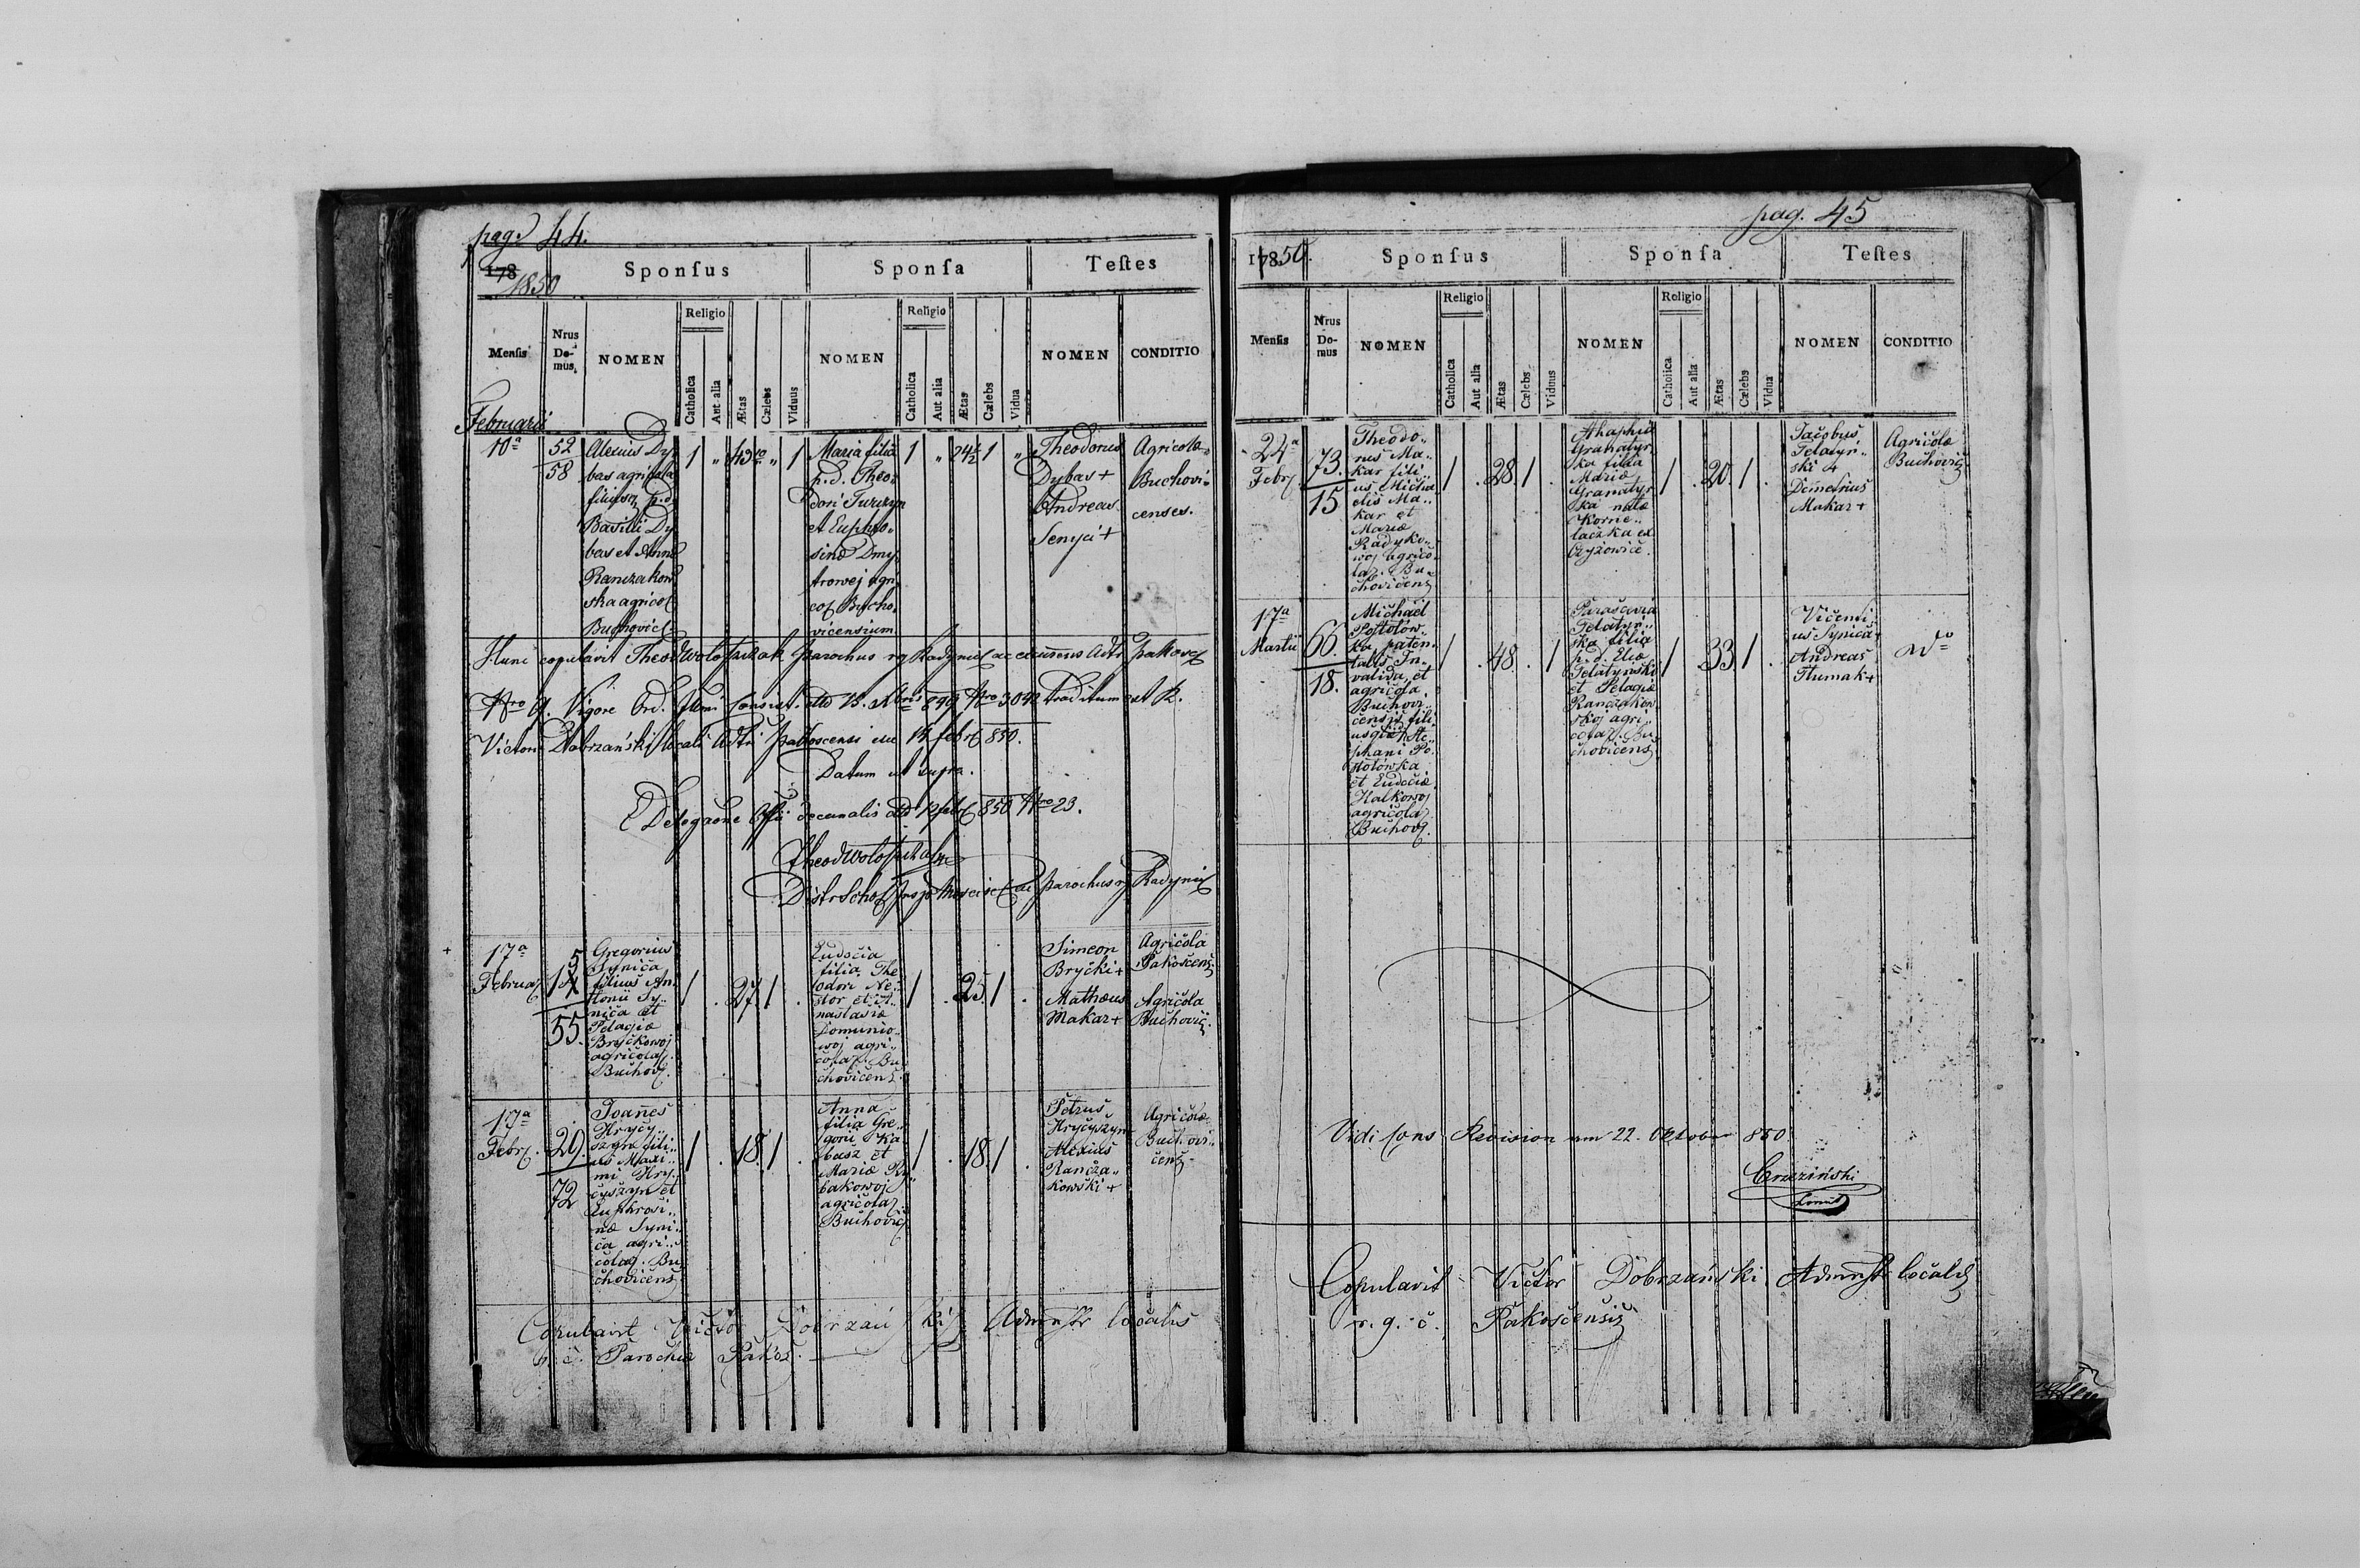 pag. 44.
178
1850
Sponsus
Sponsa
Testes
Mensis
Nrus Do-mus.
NOMEN
Religio
Catholica
Aut alia
Ætas
Cælebs
Viduus
NOMEN
Religio
Catholica
Aut alia
Ætas
Cælebs
Vidua
NOMEN
CONDITIO
Februarii
10a
52
58
Alexius Dy
bas agricola
filius p.d.
Basilii Dy
bas et Annæ
Ranczakow
ska agricol
Buchovic
1 " 43 " 1
Maria filia
p.d. Theo
dori Turczyn
et Euphro-
sinæ Dmy
trowej agri
col Bucho
vicensium
1 " 24½ 1 "
Theodorus
Dybas +
Andreas
Senyci +
Agricolæ
Buchovi-
censes.
Hunc copulavit Theod Wołoszczak Parochus rg Radynic ac Adtr Pakosc
Nro 9. Vigore Ord. Consist. dto 13. 849 Nro 3042 traditum est R.
Victori Dobrzański locali Adtri Pakoscensi die 14 febr 850.
Datum ut supra.
E Delegaone Offii decanalis dto 9 febr 850 Nro 23.
Theod Wołoszczak
Distr Schol Mosciscac Parochus rg Radynic
+
17a
Februar
5
14
55.
Gregorius
Synica
filius An
tonii Sy..
nica et
Pelagiæ
Bryckowoj
agricolar
Buchov.
1 . 27 1 .
Eudocia
filia The
odori Ne..
stor et A..
nastasiæ
Domunio..
woj agri..
colar. Bu
chovicens.
1 . 25. 1 .
Simeon
Brycki +
Mathæus
Makar +
Agricola
Pakoscens.
Agricola
Buchovic.
17a
Febr.
29.
72
Joannes
Hrycy..
szyn fili..
us Maxi..
mi Hry..
cyszyn et
Euphrosi..
næ Syni..
ca agri..
colar. Bu
chovicens
1 . 18. 1 .
Anna
filia Gre..
gorii Ka
basz et
Mariæ Ry..
bakowoj
agricolar
Buchovic
1 . 18. 1 .
Petrus
Hrycyszyn
Alexius
Rancza..
kowski +
Agricolæ
Buchovi..
cens.
Copulavit Victor Dobrzański Admnstr localis
r.g.c. Parochiæ Pakos.
pag. 45
1850.
Sponsus
Sponsa
Testes
Mensis
Nrus Do-mus
NOMEN
Religio
Catholica
Aut alia
Ætas
Cælebs
Viduus
NOMEN
Religio
Catholica
Aut alia
Ætas
Cælebs
Vidua
NOMEN
CONDITIO
24a
Febr
73.
15
Theodo..
rus Ma..
kar fili..
us Micha
elis Ma..
kar et
Mariæ
Radyko..
woj agrico
lar. Bu..
chovicens
1 . 28. 1 .
Ahaphia
Granatyr
ska filia
Mariæ
Granatyr
ska natæ
Kornie..
laczka ex
Czyzowice.
1 . 20. 1 .
Jacobus
Telatyn..
ski +
Demetrius
Makar +
Agricolæ
Buchovic
17a
Martii
66.
18.
Michael
Postolów..
ka paten..
talis In..
valida et
agricola
Buchovi..
censis fili
us Ste..
phani Po
stolówka
et Eudociæ
Halkowoj
agricolar.
Buchov.
1 . 48 . 1
Parascevia
Telatyn..
ska filia
p.d. Eliæ
Telatynski
et Pelagiæ
Ranczakow
skoj agri..
colar. Bu
chovicens.
1 . 33. 1 .
Vicenti..
us Synica +
Andreas
Tlumak +
dto
Vidi Cans Revision am 22. Oktober 850
Copulavit Victor Dobrzański Admnstr localis
r. g. c. Pakoscensis